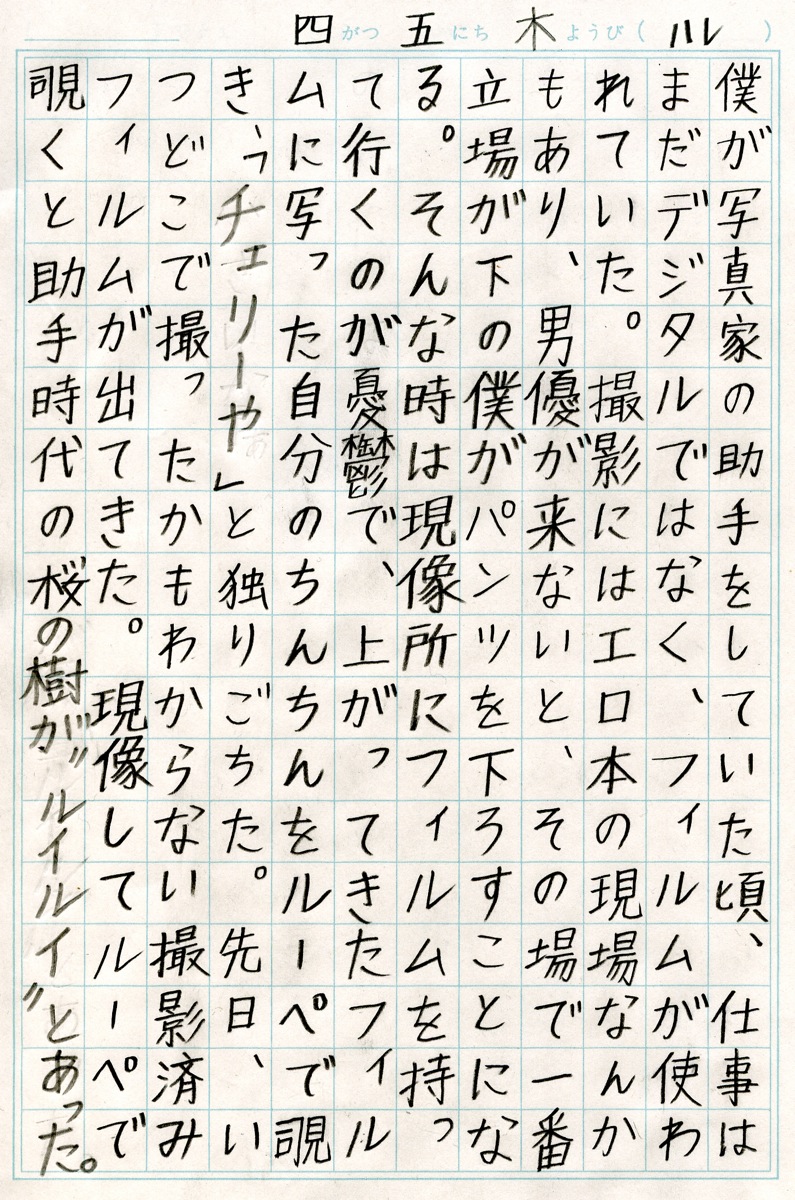 四がつ五にち木ようび(川)
僕が写真家の助手をしていた頃、仕事は
まだデジタルではなく、フィルムが使わ
れていた。撮影にはエロ本の現場なんか
もあり、男優が来ないと、その場で一番
立場が下の僕がパンツを下ろすことにな
る。そんな時は現像所にフィルムを持っ
て行くのが憂鬱で、上がってきたフィル
ムに写った自分のちんちんをルーペで覗
き、「チェリーや」と独りごちた。先日、い
つどこで撮ったかもわからない撮影済み
フィルムが出てきた。現像してルーペで
覗くと助手時代の桜の樹が〝ルイルイ〟とあった。